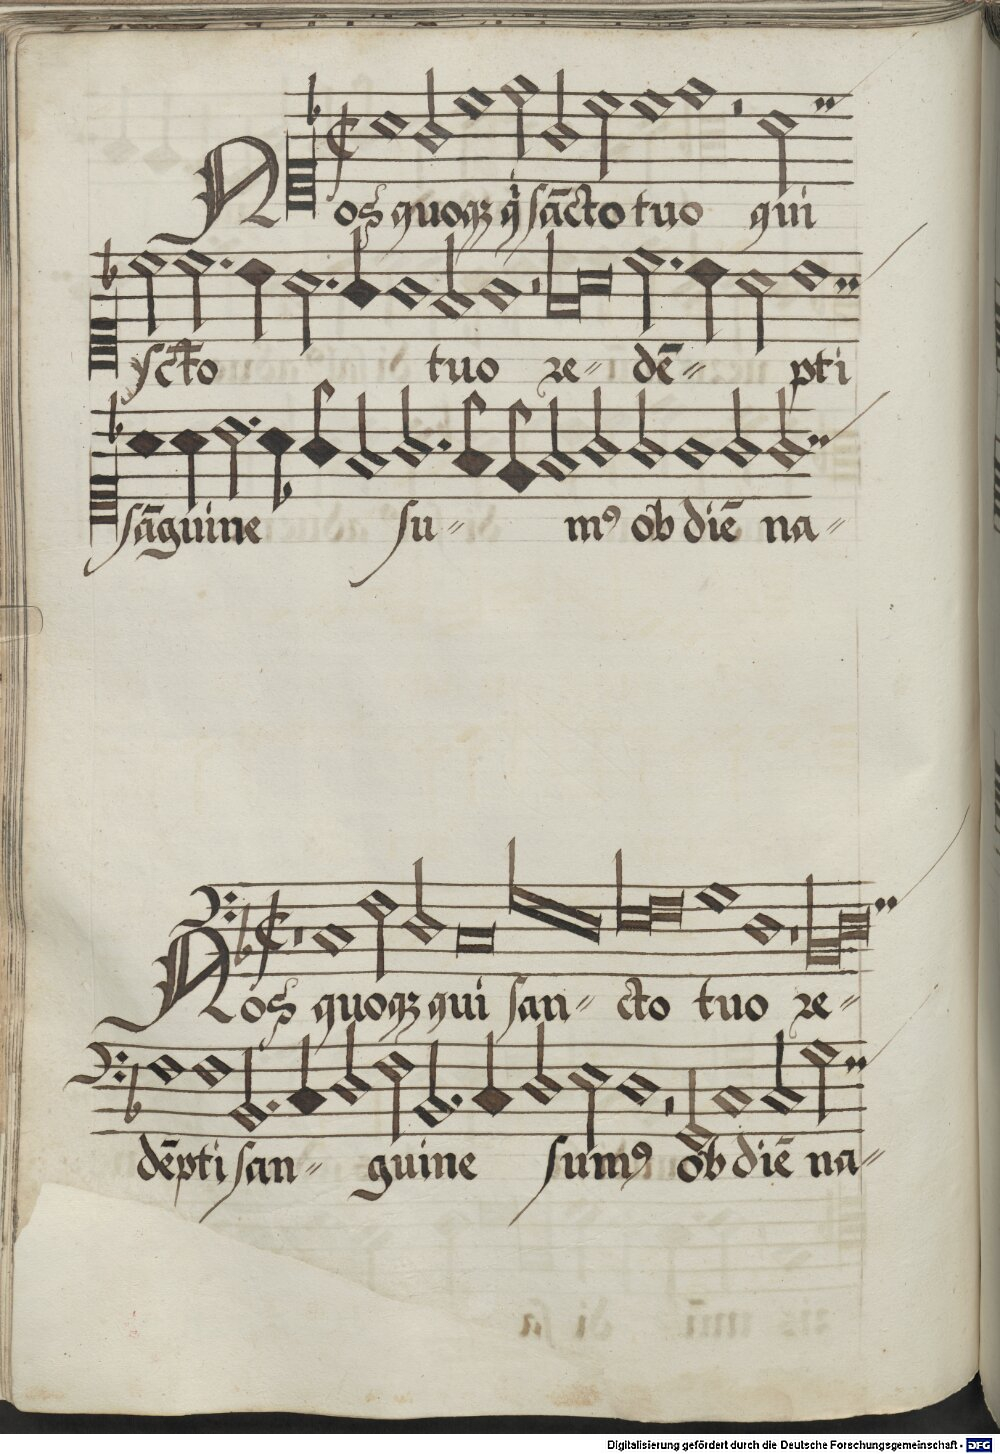 Nos quoqꝫ q̇ sāctо tuo qui
sct̄o tuo re- dē- pti
sāguine su- mꝰ ob diē na-
Nos quoqꝫ qui san- cto tuo re-
dēpti san- guine sumꝰ ob diē na-
Digitalisierung gefördert durch die Deutsche Forschungsgemeinschaft - DFG